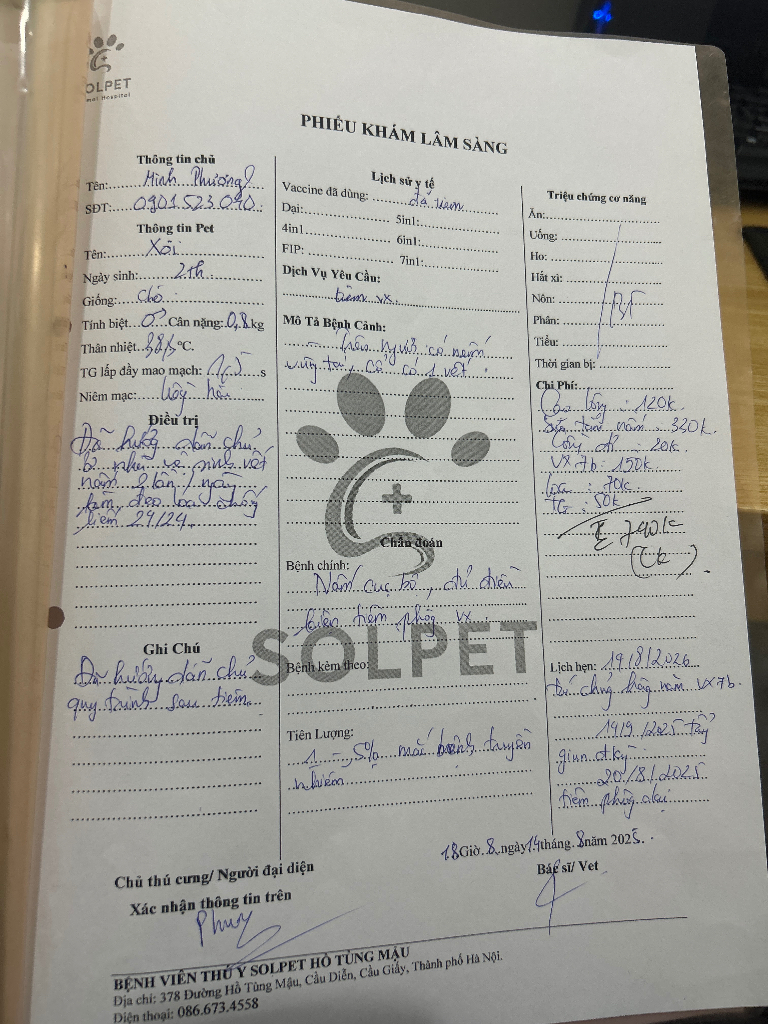 SOLPET
PHIẾU KHÁM LÂM SÀNG
Thông tin chủ
Tên: Minh Phương
SĐT: 0901.523.090
Thông tin Pet
Tên: Xôi
Ngày sinh: 2th
Giống: chó
Tính biệt ♂ Cân nặng: 0,8 kg
Thân nhiệt °C.
TG lấp đầy mao mạch: s
Niêm mạc: hồng hào
Điều trị
Đã hướng dẫn chủ
vệ sinh vết
nấm 2 lần / ngày
đeo loa chống
liếm 24/24
Ghi Chú
Đã hướng dẫn chủ
quy trình sau tiêm
Lịch sử y tế
Vaccine đã dùng: đã tiêm
Dại:
5in1:
4in1
6in1:
FIP:
7in1:
Dịch Vụ Yêu Cầu:
tiêm vx
Mô Tả Bệnh Cảnh:
trên người có nấm
cổ có 1 vết
Chẩn đoán
Bệnh chính:
Nấm cục bộ, đủ điều
kiện tiêm phòng vx
SOLPET
Bệnh kèm theo:
Tiên Lượng:
1 - 5% mắc bệnh truyền
nhiễm
Triệu chứng cơ năng
Ăn:
Uống:
Ho:
Hắt xì:
Nôn:
BT
Phân:
Tiểu:
Thời gian bị:
Chi Phí:
Cạo lông : 120k
Sữa tắm nấm : 330k
20k
VX 7b : 150k
loa : 70k
TG : 50k
Σ 740k
(ck)
Lịch hẹn: 19/8/2026
tái chủng hằng năm vx7b
14/9/2025 tẩy
giun đkỳ
20/8/2025
tiêm phòng dại
18Giờ.8.ngày14tháng.8năm 2025.
Chủ thú cưng/ Người đại diện
Bác sĩ/ Vet
Xác nhận thông tin trên
Phương
BỆNH VIỆN THÚ Y SOLPET HỒ TÙNG MẬU
Địa chỉ: 378 Đường Hồ Tùng Mậu, Cầu Diễn, Cầu Giấy, Thành phố Hà Nội.
Điện thoại: 086.673.4558